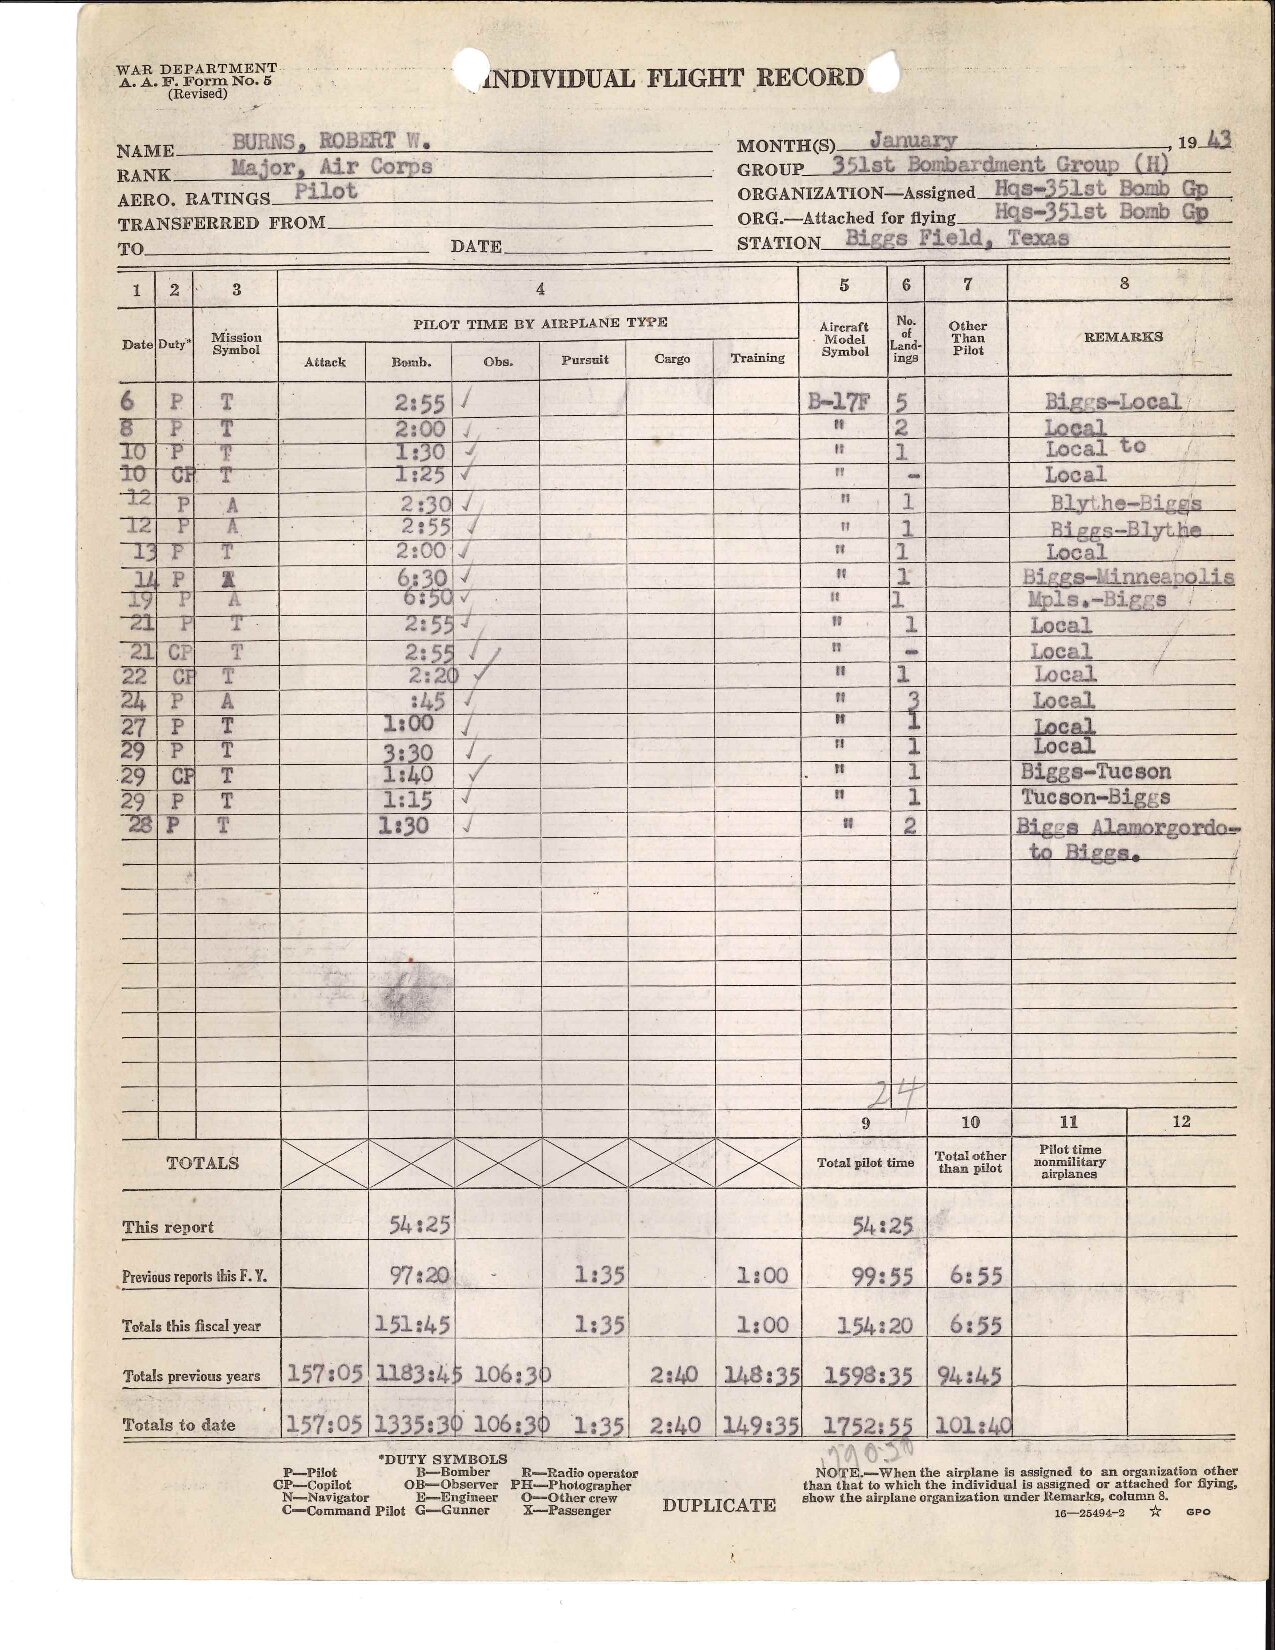 WAR DEPARTMENT
A. A. F. Form No. 5
(Revised)
INDIVIDUAL FLIGHT RECORD
NAME BURNS, ROBERT W.
RANK Major, Air Corps
AERO. RATINGS Pilot
TRANSFERRED FROM
TO DATE
MONTH(S) January, 1943
GROUP 351st Bombardment Group (H)
ORGANIZATION—Assigned Hqs-351st Bomb Gp
ORG.—Attached for flying Hqs-351st Bomb Gp
STATION Biggs Field, Texas
1 2 3 4 5 6 7 8
Date Duty* Mission Symbol PILOT TIME BY AIRPLANE TYPE Aircraft Model Symbol No. of Land-ings Other Than Pilot REMARKS
Attack Bomb. Obs. Pursuit Cargo Training
6 P T 2:55 ✓ B-17F 5 Biggs-Local
8 P T 2:00 ✓ " 2 Local
10 P T 1:30 ✓ " 1 Local to
10 CP T 1:25 ✓ " - Local
12 P A 2:30 ✓ " 1 Blythe-Biggs
12 P A 2:55 ✓ " 1 Biggs-Blythe
13 P T 2:00 ✓ " 1 Local
14 P A 6:30 ✓ " 1 Biggs-Minneapolis
19 P A 6:50 ✓ " 1 Mpls.-Biggs
21 P T 2:55 ✓ " 1 Local
21 CP T 2:55 ✓ " - Local
22 CP T 2:20 ✓ " 1 Local
24 P A :45 ✓ " 3 Local
27 P T 1:00 ✓ " 1 Local
29 P T 3:30 ✓ " 1 Local
29 CP T 1:40 ✓ " 1 Biggs-Tucson
29 P T 1:15 ✓ " 1 Tucson-Biggs
28 P T 1:30 ✓ " 2 Biggs Alamorgordo-
to Biggs.
24
9 10 11 12
TOTALS Total pilot time Total other than pilot Pilot time nonmilitary airplanes
This report 54:25 54:25
Previous reports this F. Y. 97:20 - 1:35 1:00 99:55 6:55
Totals this fiscal year 151:45 1:35 1:00 154:20 6:55
Totals previous years 157:05 1183:45 106:30 2:40 148:35 1598:35 94:45
Totals to date 157:05 1335:30 106:30 1:35 2:40 149:35 1752:55 101:40
*DUTY SYMBOLS
P—Pilot B—Bomber R—Radio operator
CP—Copilot OB—Observer PH—Photographer
N—Navigator E—Engineer O—Other crew
C—Command Pilot G—Gunner X—Passenger
DUPLICATE
NOTE.—When the airplane is assigned to an organization other
than that to which the individual is assigned or attached for flying,
show the airplane organization under Remarks, column 8.
16—25494-2 ☆ GPO